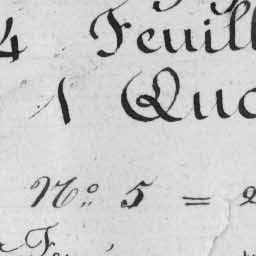 4 Feuill
1 Quo
N.º 5 = 2